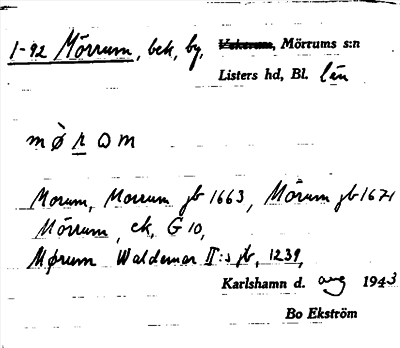 1-92 Mörrum, bek, by, Mörrums s:n
Listers hd, Bl. län
mø̀rɷm
Morum, Morrum jb 1663, Mörum jb 1671
Mörrum, ek, G 10,
Mørum Waldemar II:s jb, 1231,
Karlshamn d. aug 1943
Bo Ekström